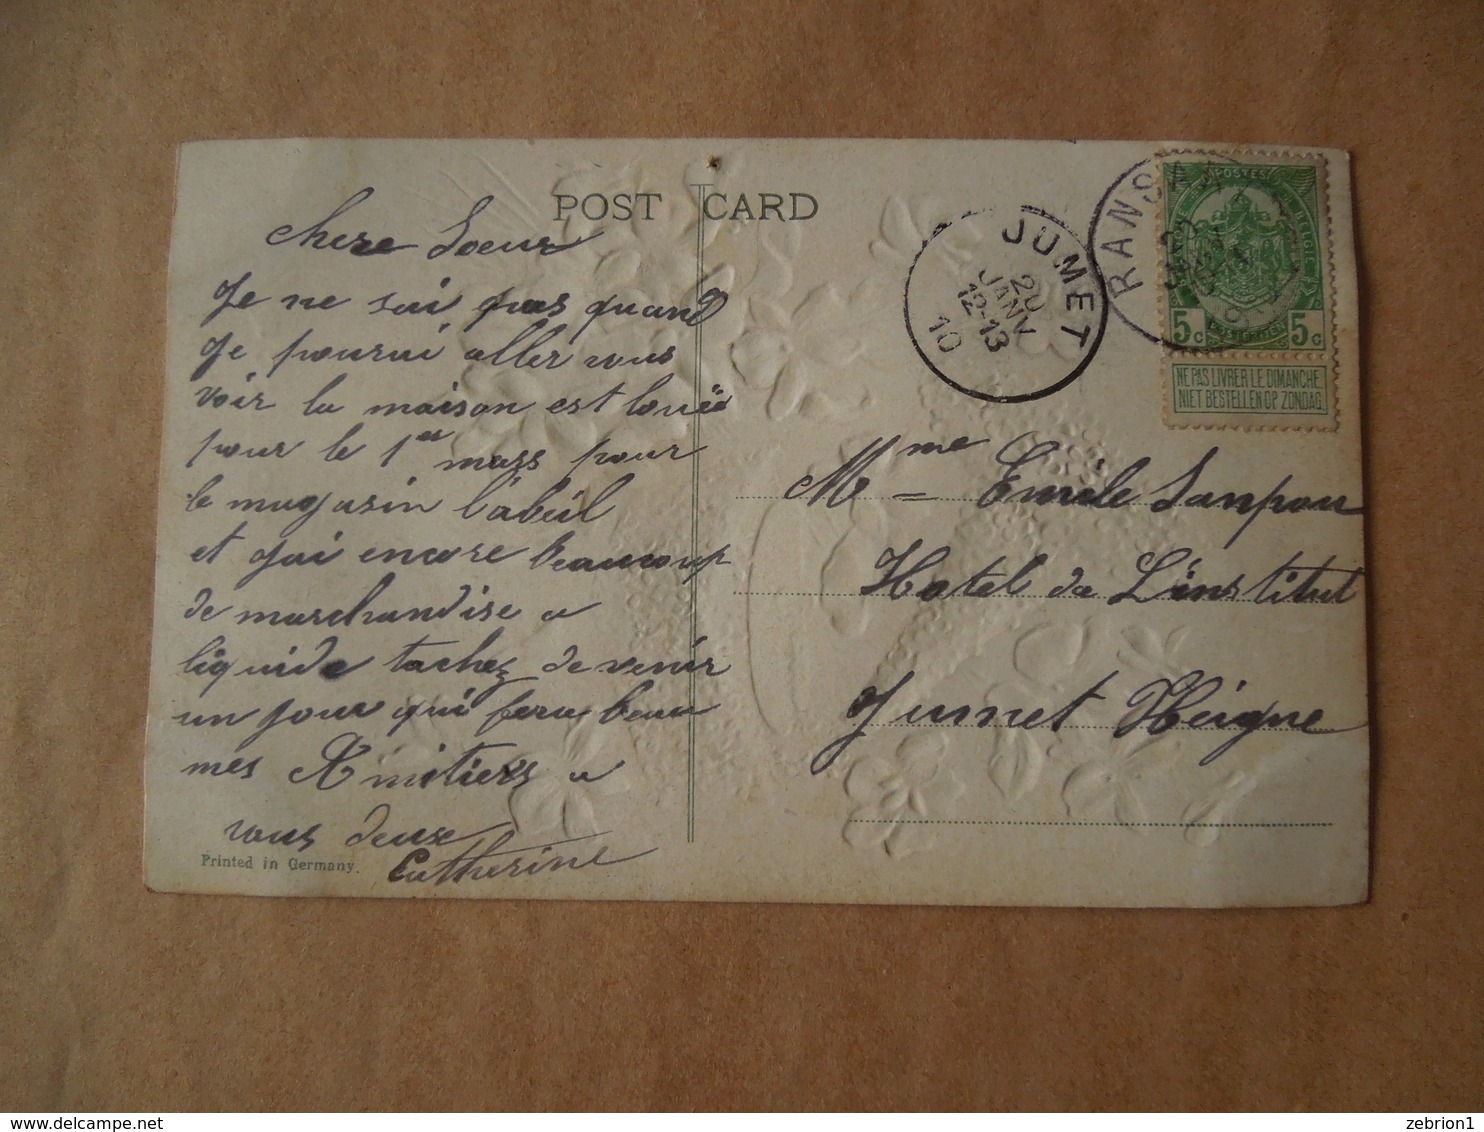 POST CARD
chere Soeur
Je ne sai pas quand
Je pourai aller vous
voir la maison est louëe
pour le 1er mars pour
le magasin l'abeil
et jai encore beaucoup
de marchandise a
liquide tachez de venir
un jour qui fera beau
mes Amitiers a
vous deux
Catherine
Printed in Germany.
JUMET
20
JANV
12-13
10
RANSA
POSTES
5c 5c
NE PAS LIVRER LE DIMANCHE
NIET BESTELLEN OP ZONDAG
Mme Emile
Hotel de L'institut
Jumet Heigne
delcampe.net
zebrion1